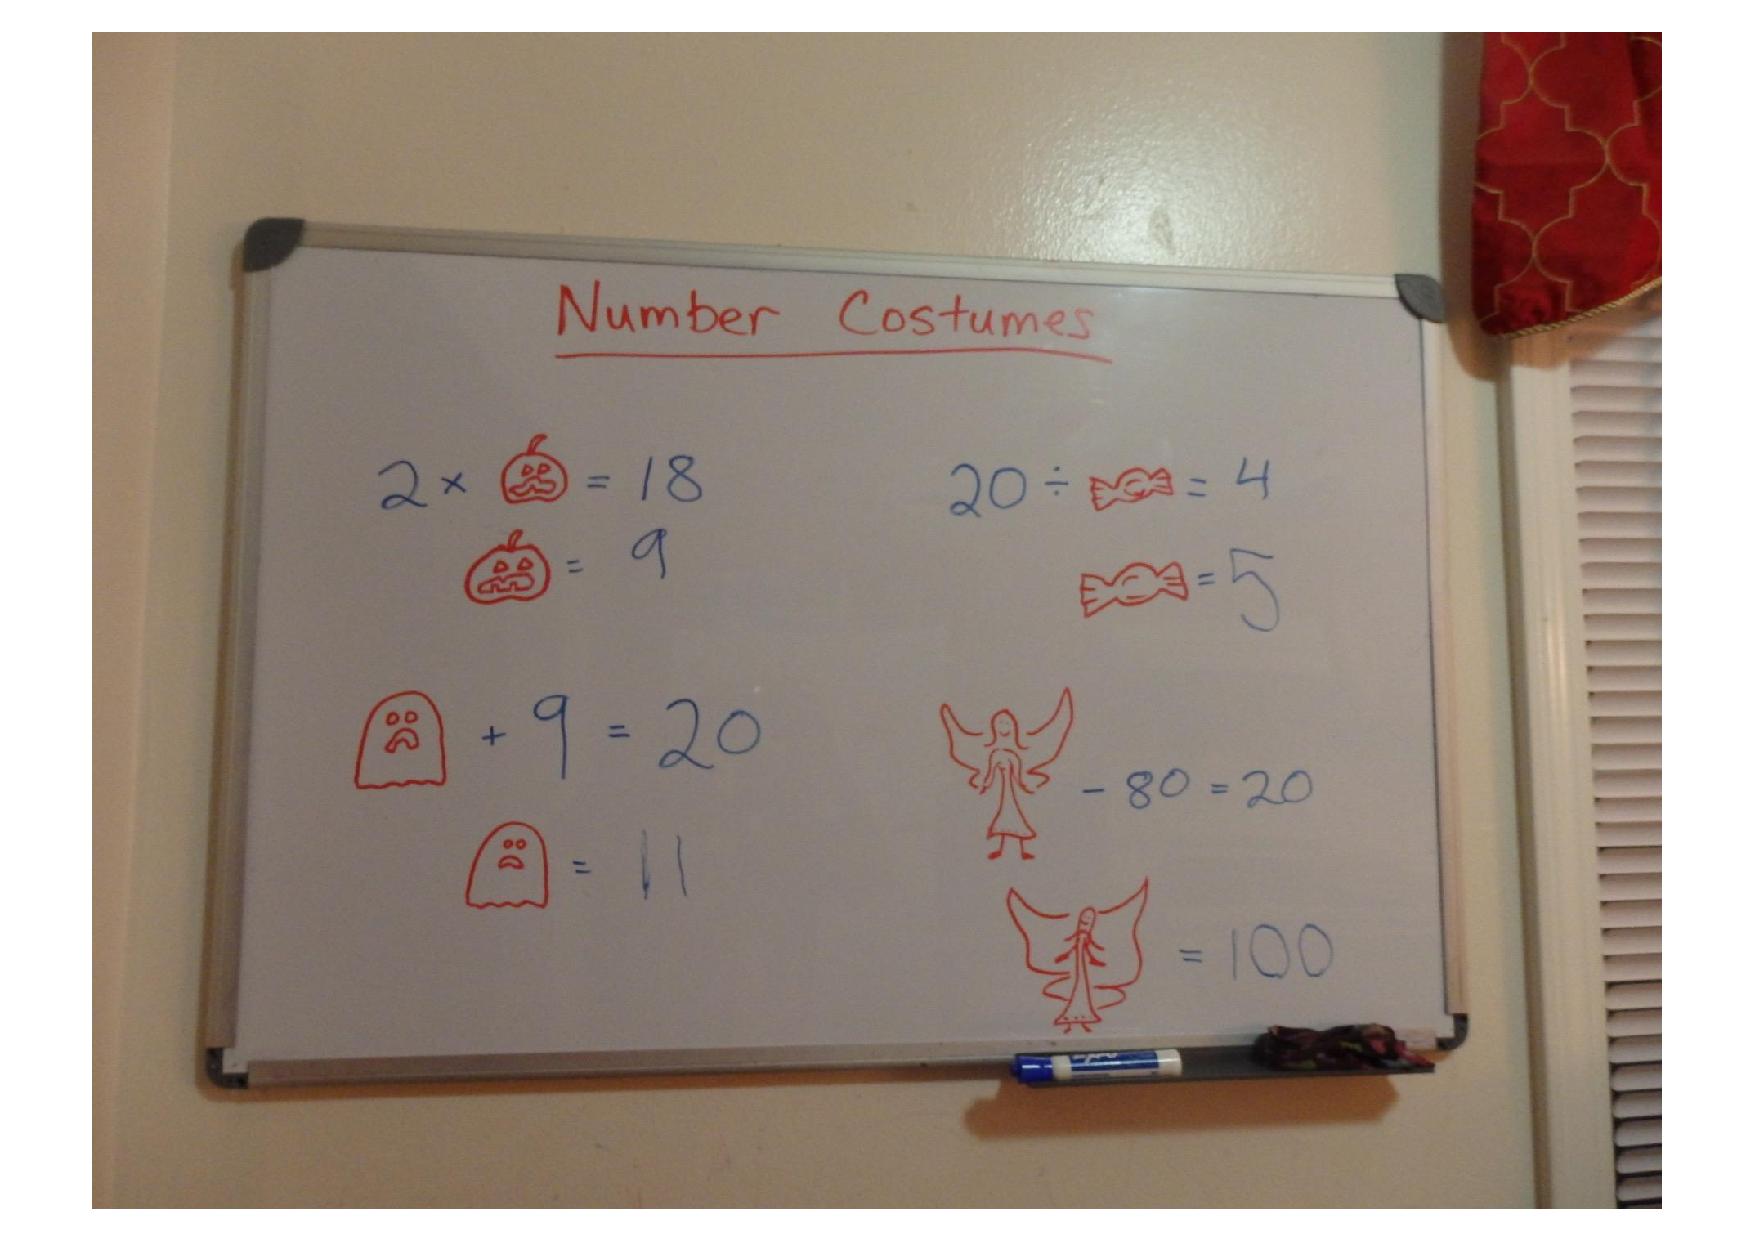 Number Costumes
2 × = 18
= 9
+ 9 = 20
= 11
20 ÷ = 4
= 5
- 80 = 20
= 100